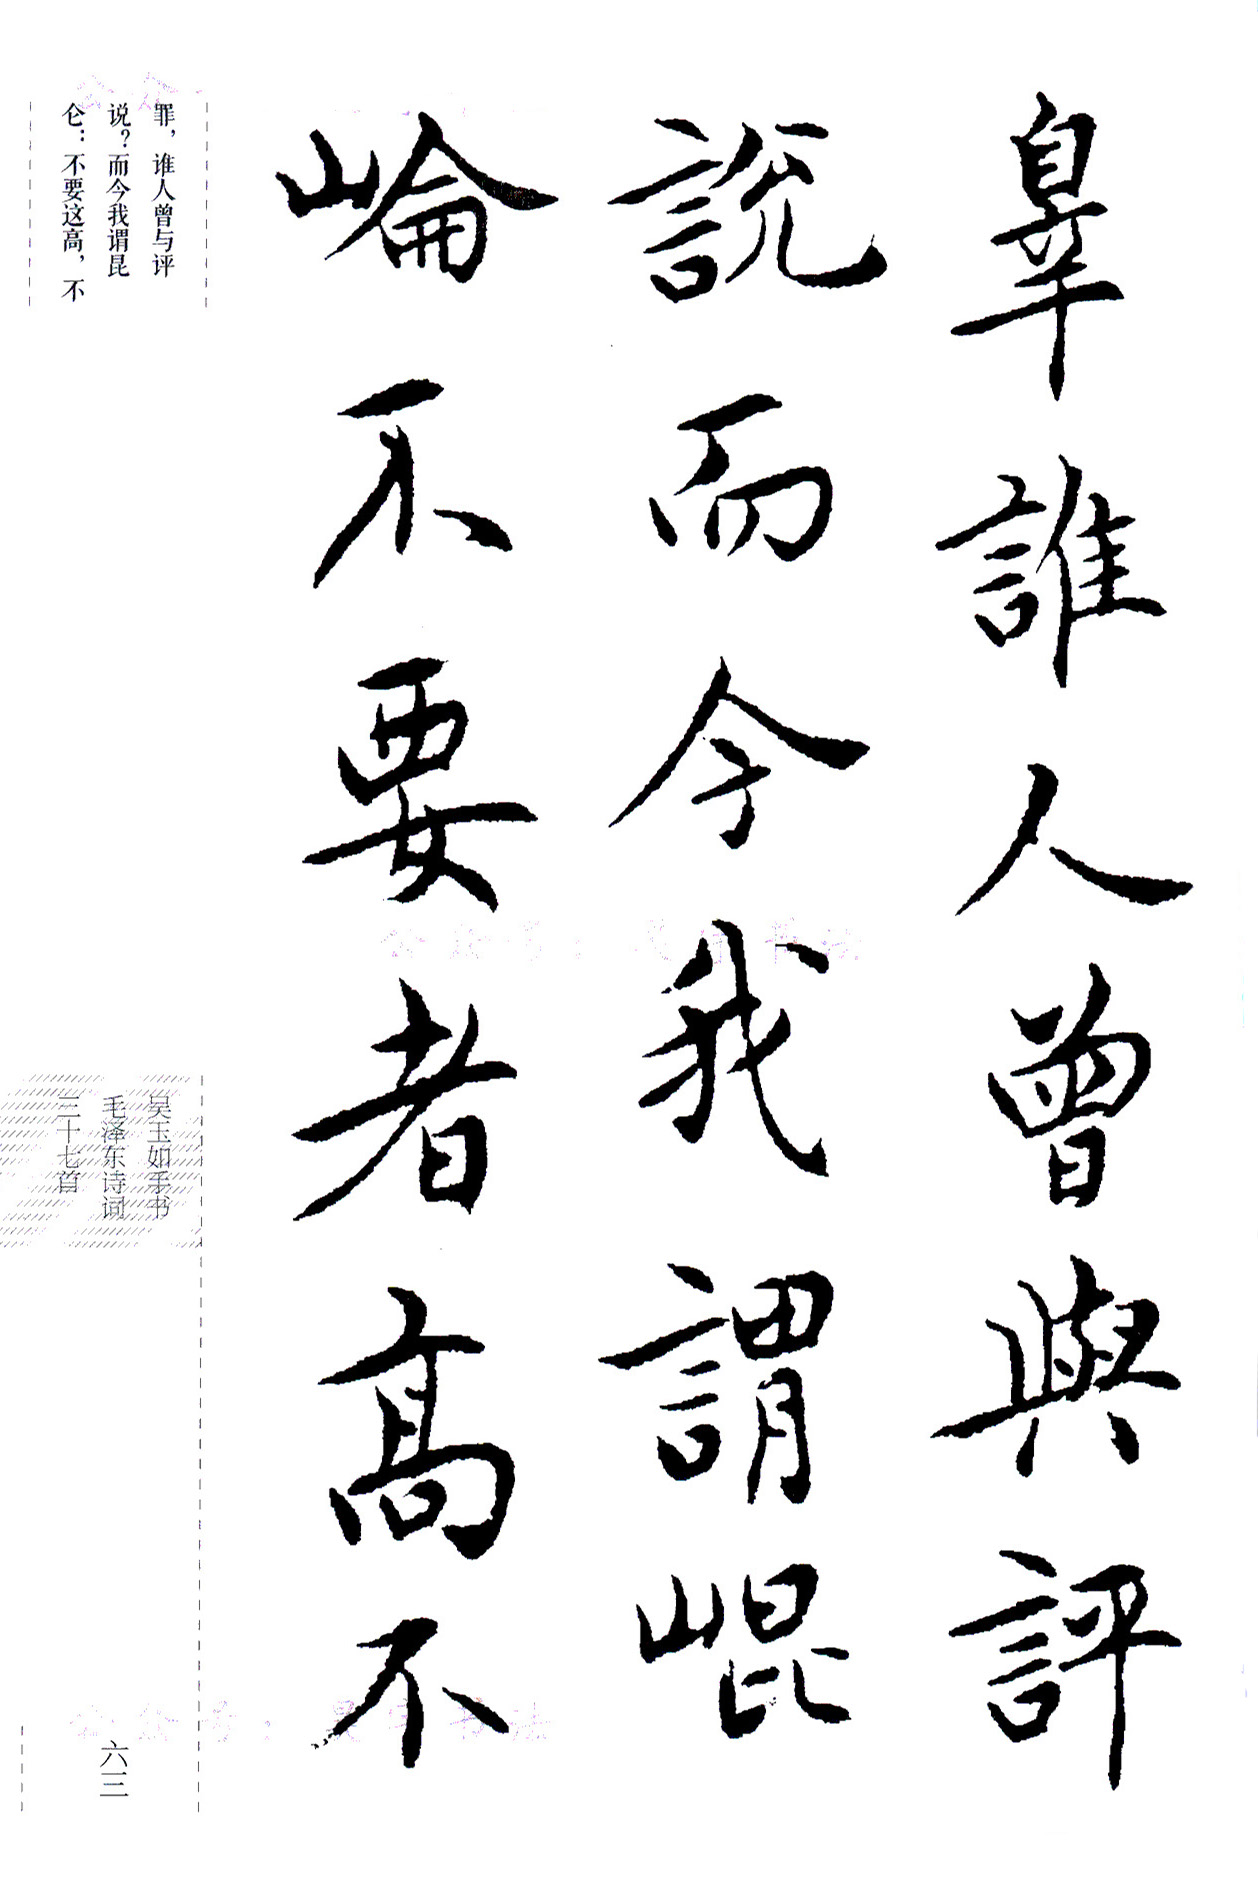 辠誰人曾與評
說而今我謂崐
崘不要者高不
罪，谁人曾与评
说？而今我谓昆
仑：不要这高，不
吴玉如手书
毛泽东诗词
三十七首
六三